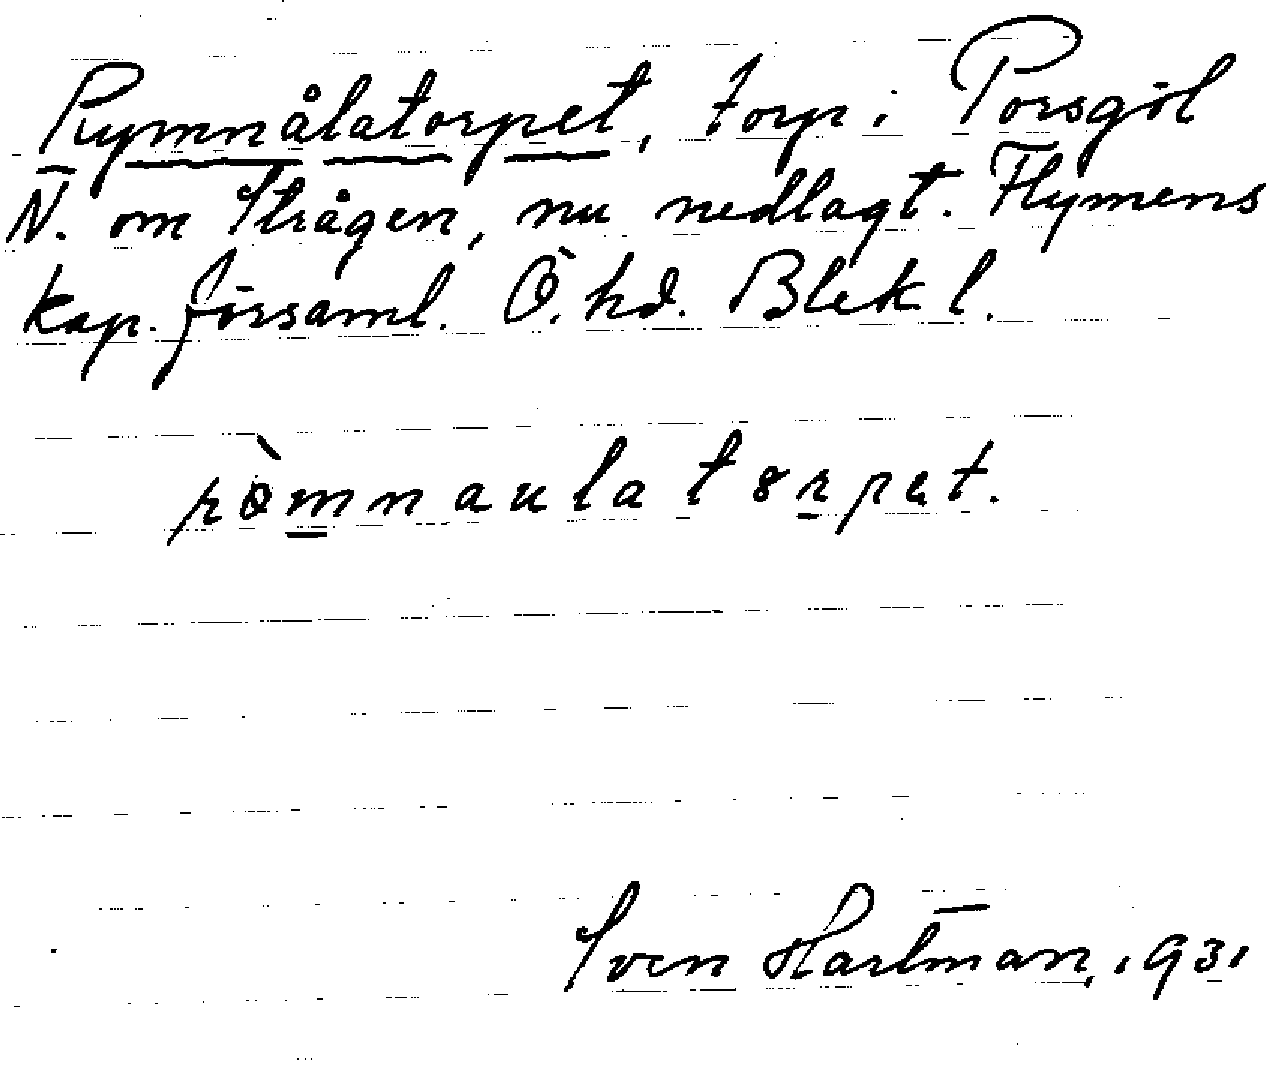 Rymnålatorpet, torp i Porsgöl
N. om Strågen, nu nedlagt. Flymens
kap. församl. Ö. hd. Blek l.
ròmnaulatorpet.
Sven Hartman, 1931